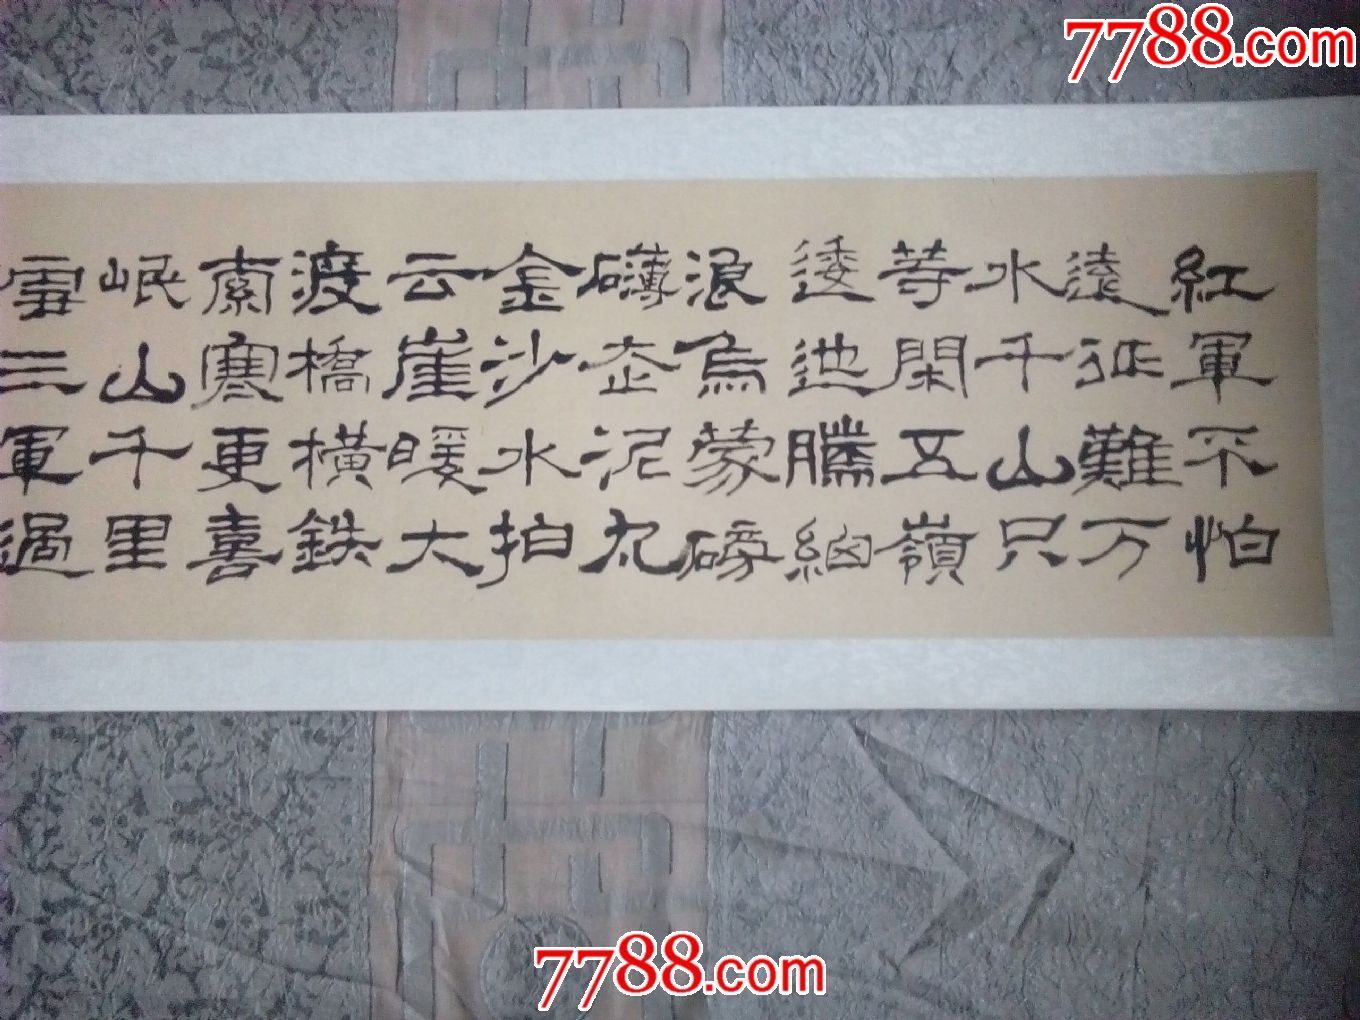 7788.com
紅軍不怕
遠征難万
水千山只
等閑五嶺
逶迤騰細
浪烏蒙磅
礴走泥丸
金沙水拍
云崖暖大
渡橋橫鉄
索寒更喜
岷山千里
雪三軍過
7788.com